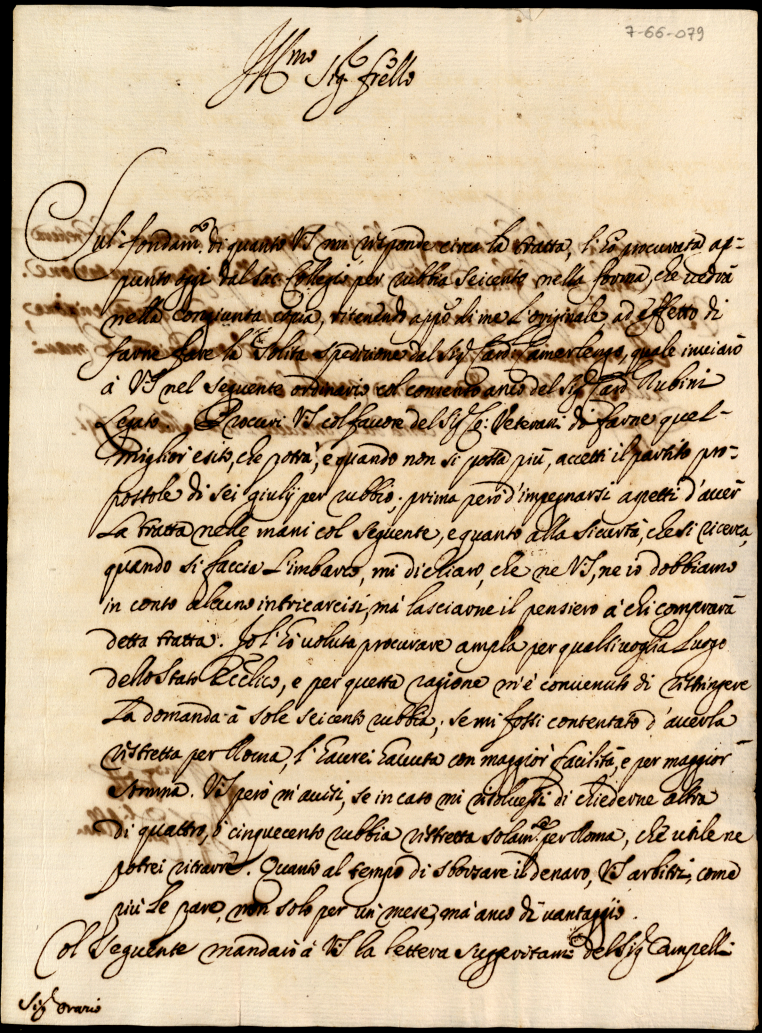 7-66-079
Ill.mo Sig.r frello
Sul fondam.to di quanto VS mi risponde circa la tratta, l'hò procurata ap=
punto oggi dal sac. Collegio per rubbia seicento nella forma, che vedrà
nella congiunta copia, ritenendo appo di me l'originale ad effetto di
farne fare la solita spedizione dal Sig.r Card. Camerlengo, quale inviarò
à VS nel seguente ordinario col consenso anco del Sig.r Card. Rubini
Legato. Procuri VS col favore del Sig.r Co: Veterani di farne quel
miglior esito, che potrà, e quando non si possa più, accetti il partito pro=
postole di sei giulij per rubbio; prima però d'impegnarsi aspetti d'aver
la tratta nelle mani col seguente, e quanto alla sicurtà, che si ricerca,
quando si faccia l'imbarco, mi dichiaro, che ne VS, ne io dobbiamo
in conto alcuno intricarcisi, mà lasciarne il pensiero à chi comprarà
detta tratta. Io l'hò voluta procurare ampla per qualsivoglia Luogo
dello Stato Ecclico, e per questa ragione m'è convenuto di ristringere
la domanda à sole seicento rubbia; se mi fossi contentato d'averla
ristretta per Roma, l'haverei havuta con maggior facilità, e per maggior
somma. VS però m'avisi, se in caso mi risolvessi di chiederne altra
di quattro, ò cinquecento rubbia ristretta solam.te per Roma, che utile ne
potrei ritrarre. Quanto al tempo di sborsare il denaro, VS arbitri, come
più le pare, non solo per un mese, mà anco di vantaggio.
Col seguente mandarò à VS la lettera suggeritami del Sig.r Campelli
Sig.r Orazio